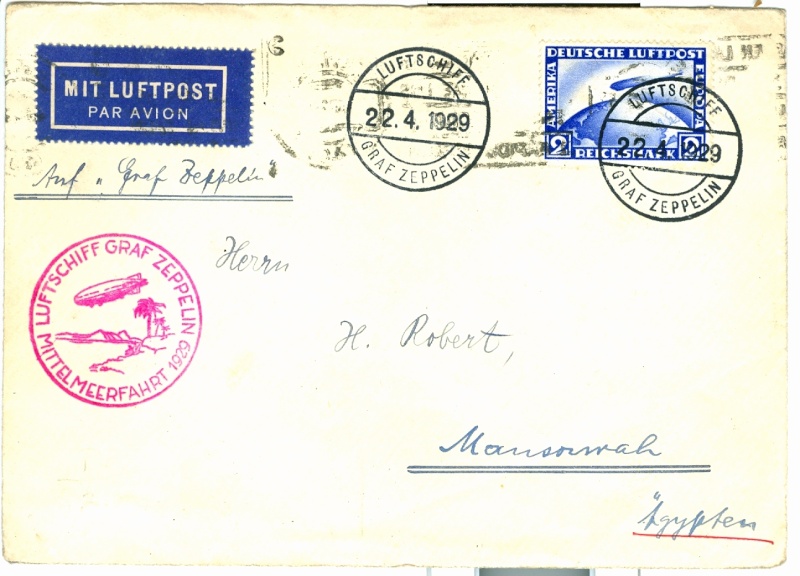 MIT LUFTPOST
PAR AVION
LUFTSCHIFF
22.4.1929
GRAF ZEPPELIN
DEUTSCHE LUFTPOST
AMERIKA
EUROPA
2 2
REICHSMARK
LUFTSCHIFF
22.4.1929
GRAF ZEPPELIN
Auf „Graf Zeppelin"
LUFTSCHIFF GRAF ZEPPELIN
MITTELMEERFAHRT 1929
Herrn
H. Robert,
Mansourah
Ägypten